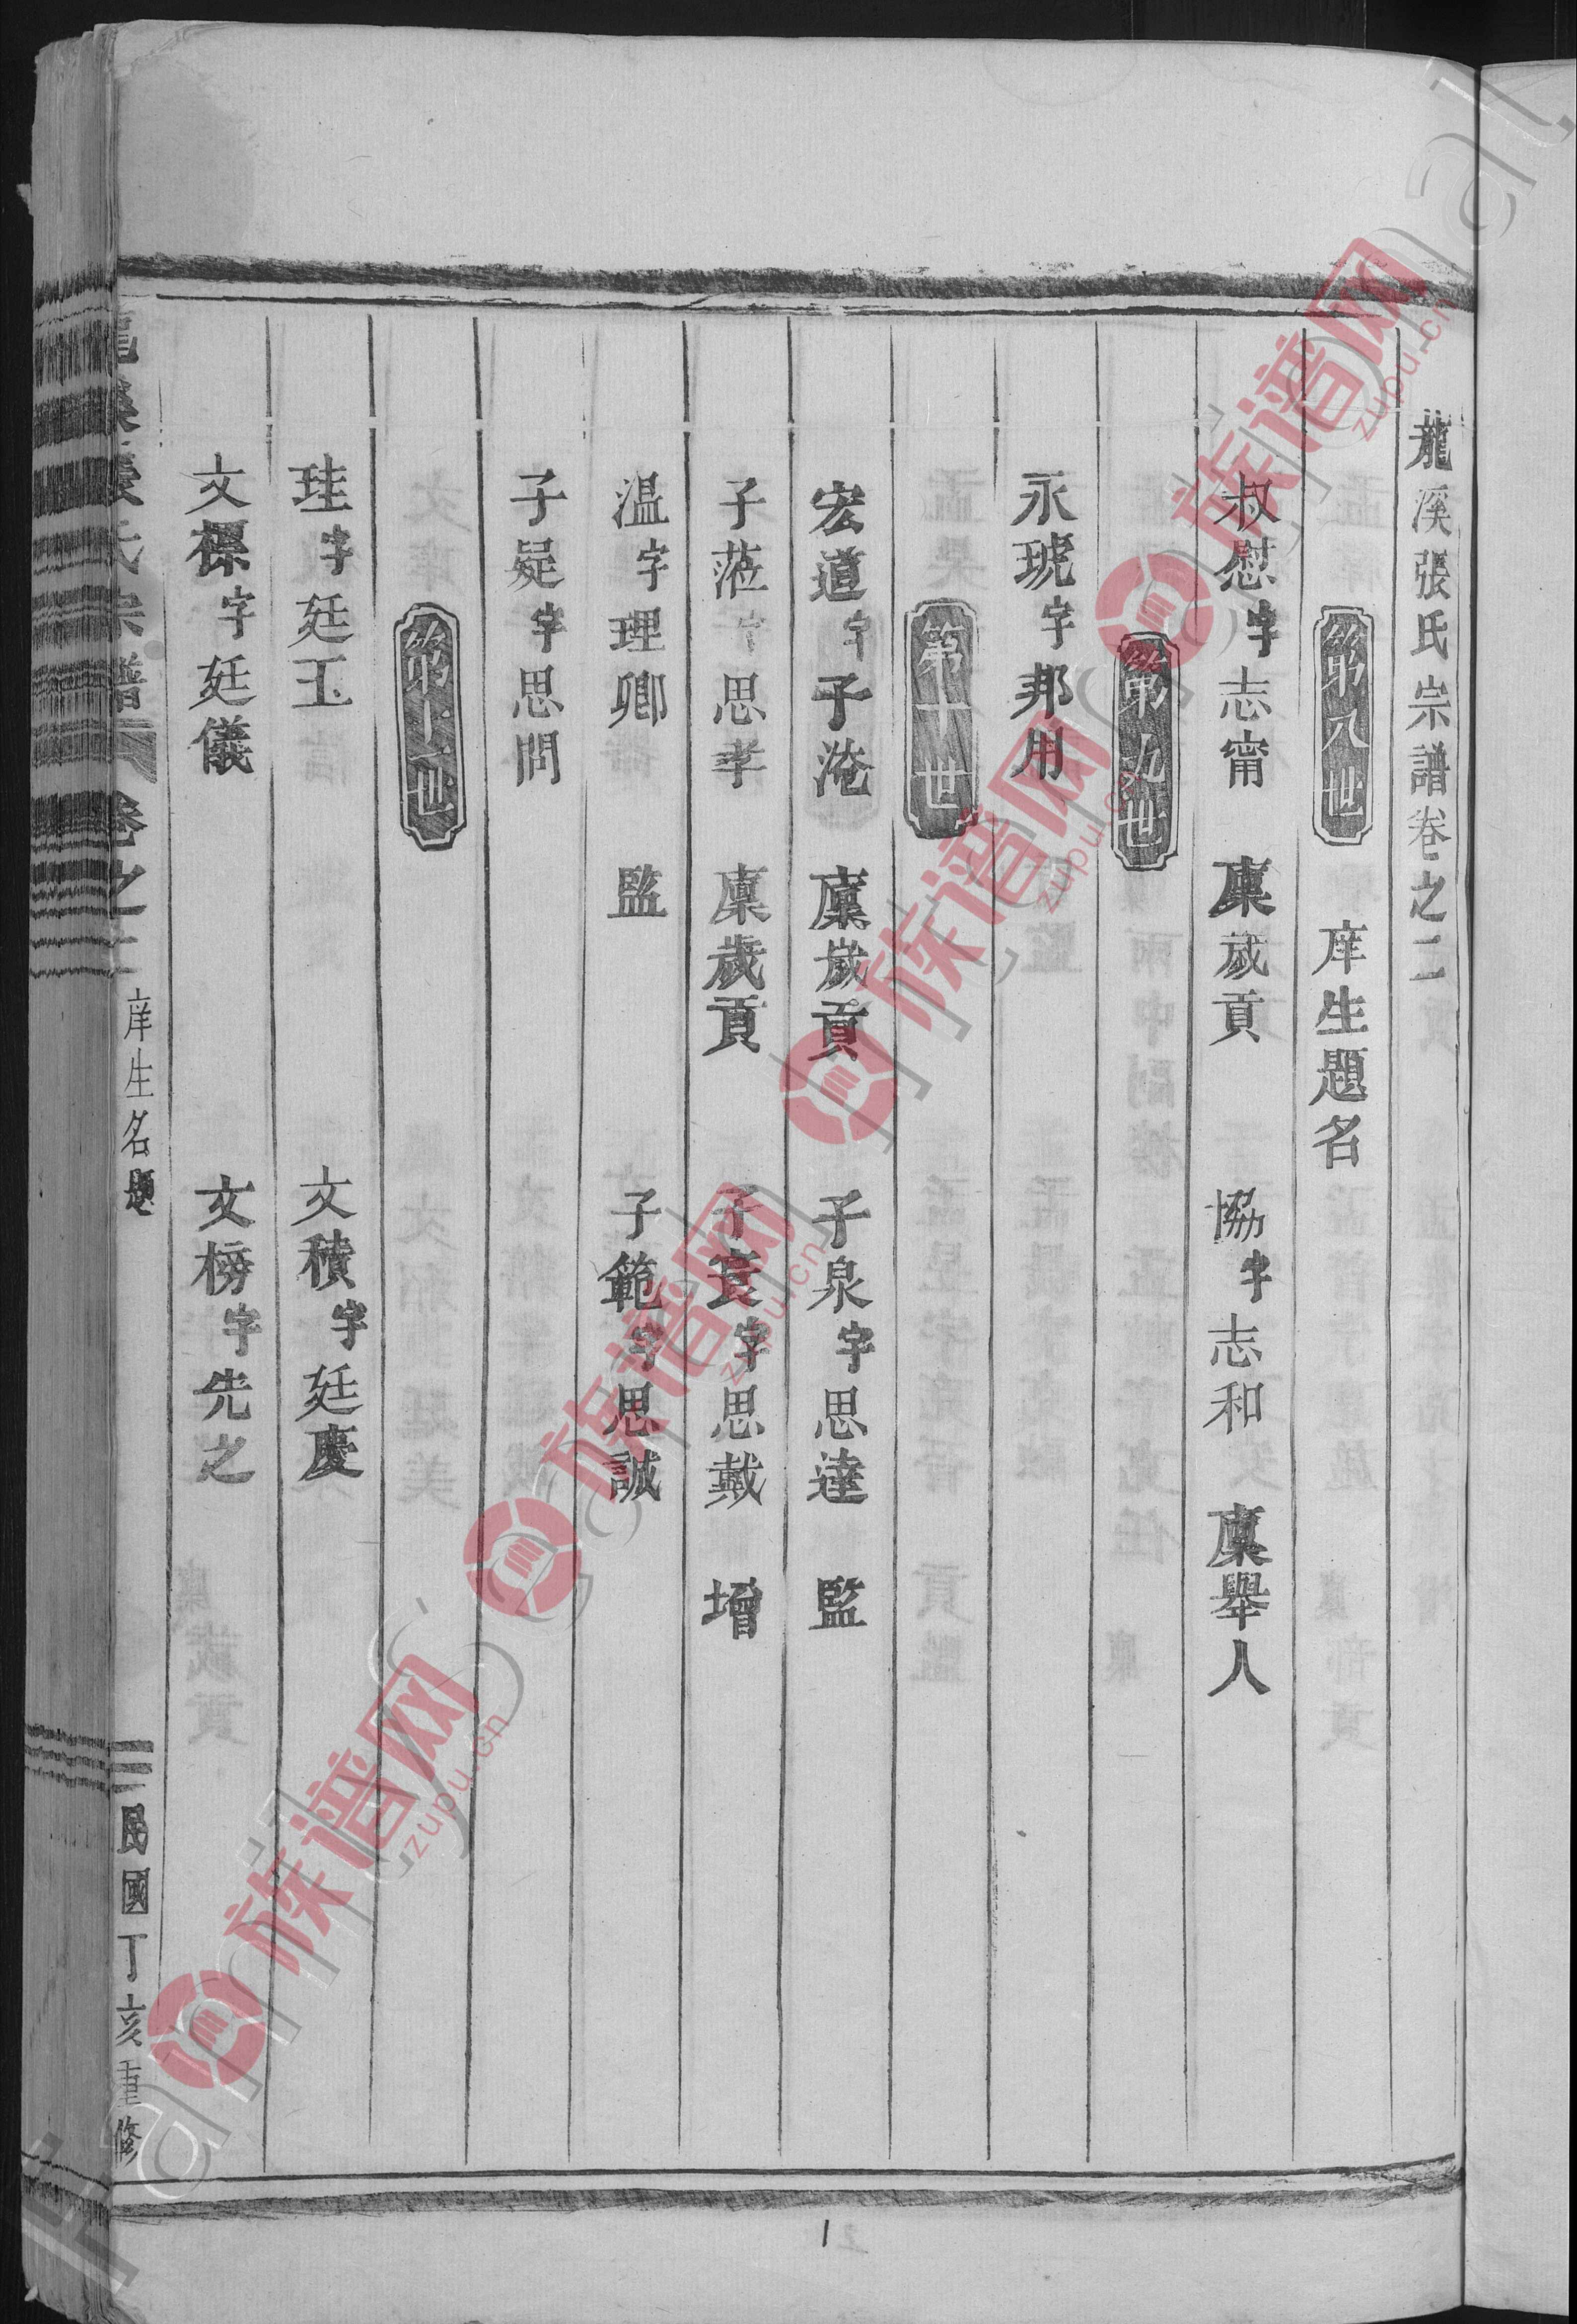 龍溪張氏宗譜卷之二
第八世 庠生題名
叔慰字志甯 廩歲貢 協字志和 廩舉人
第九世
永琥字邦用
第十世
宏道字子淹 廩歲貢 子泉字思達 監
子蒞字思孝 廩歲貢 子袞字思戴 增
溫字理卿 監 子範字思誠
子疑字思問
第十一世
珪字廷玉 文積字廷慶
文標字廷儀 文榜字先之
龍溪張氏宗譜 卷之二 庠生名題 民國丁亥重修
1
族谱网
zupu.cn
族谱网
zupu.cn
族谱网
zupu.cn
族谱网
zupu.cn